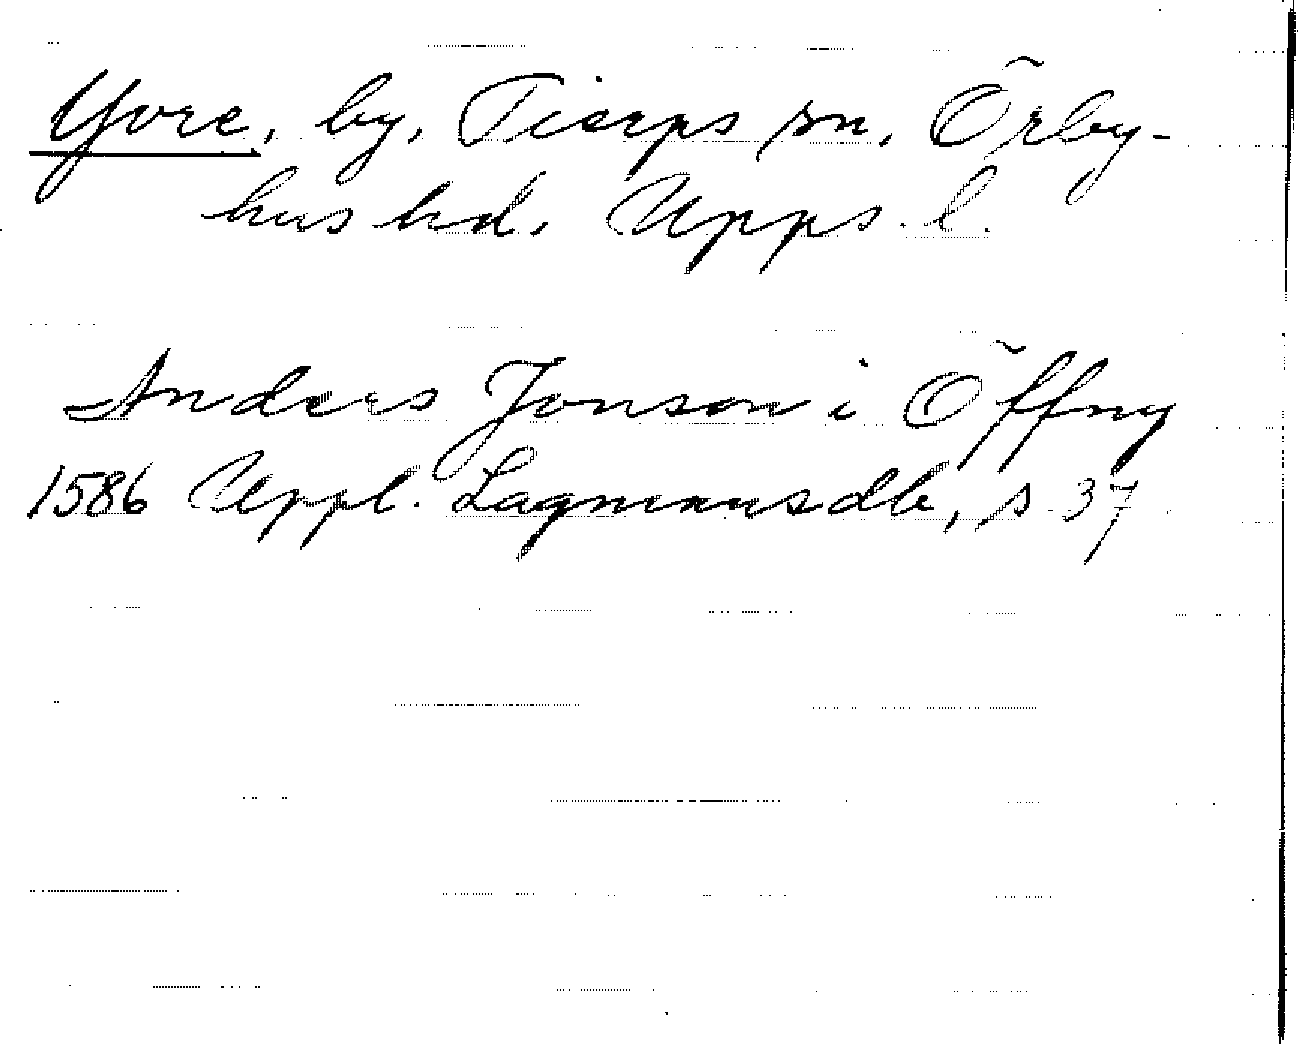 Yvre, by, Tierps sn, Örby-
hus hd, Upps. l.
Anders Jonson i Öffny
1586 Uppl. Lagmansdb, s 37